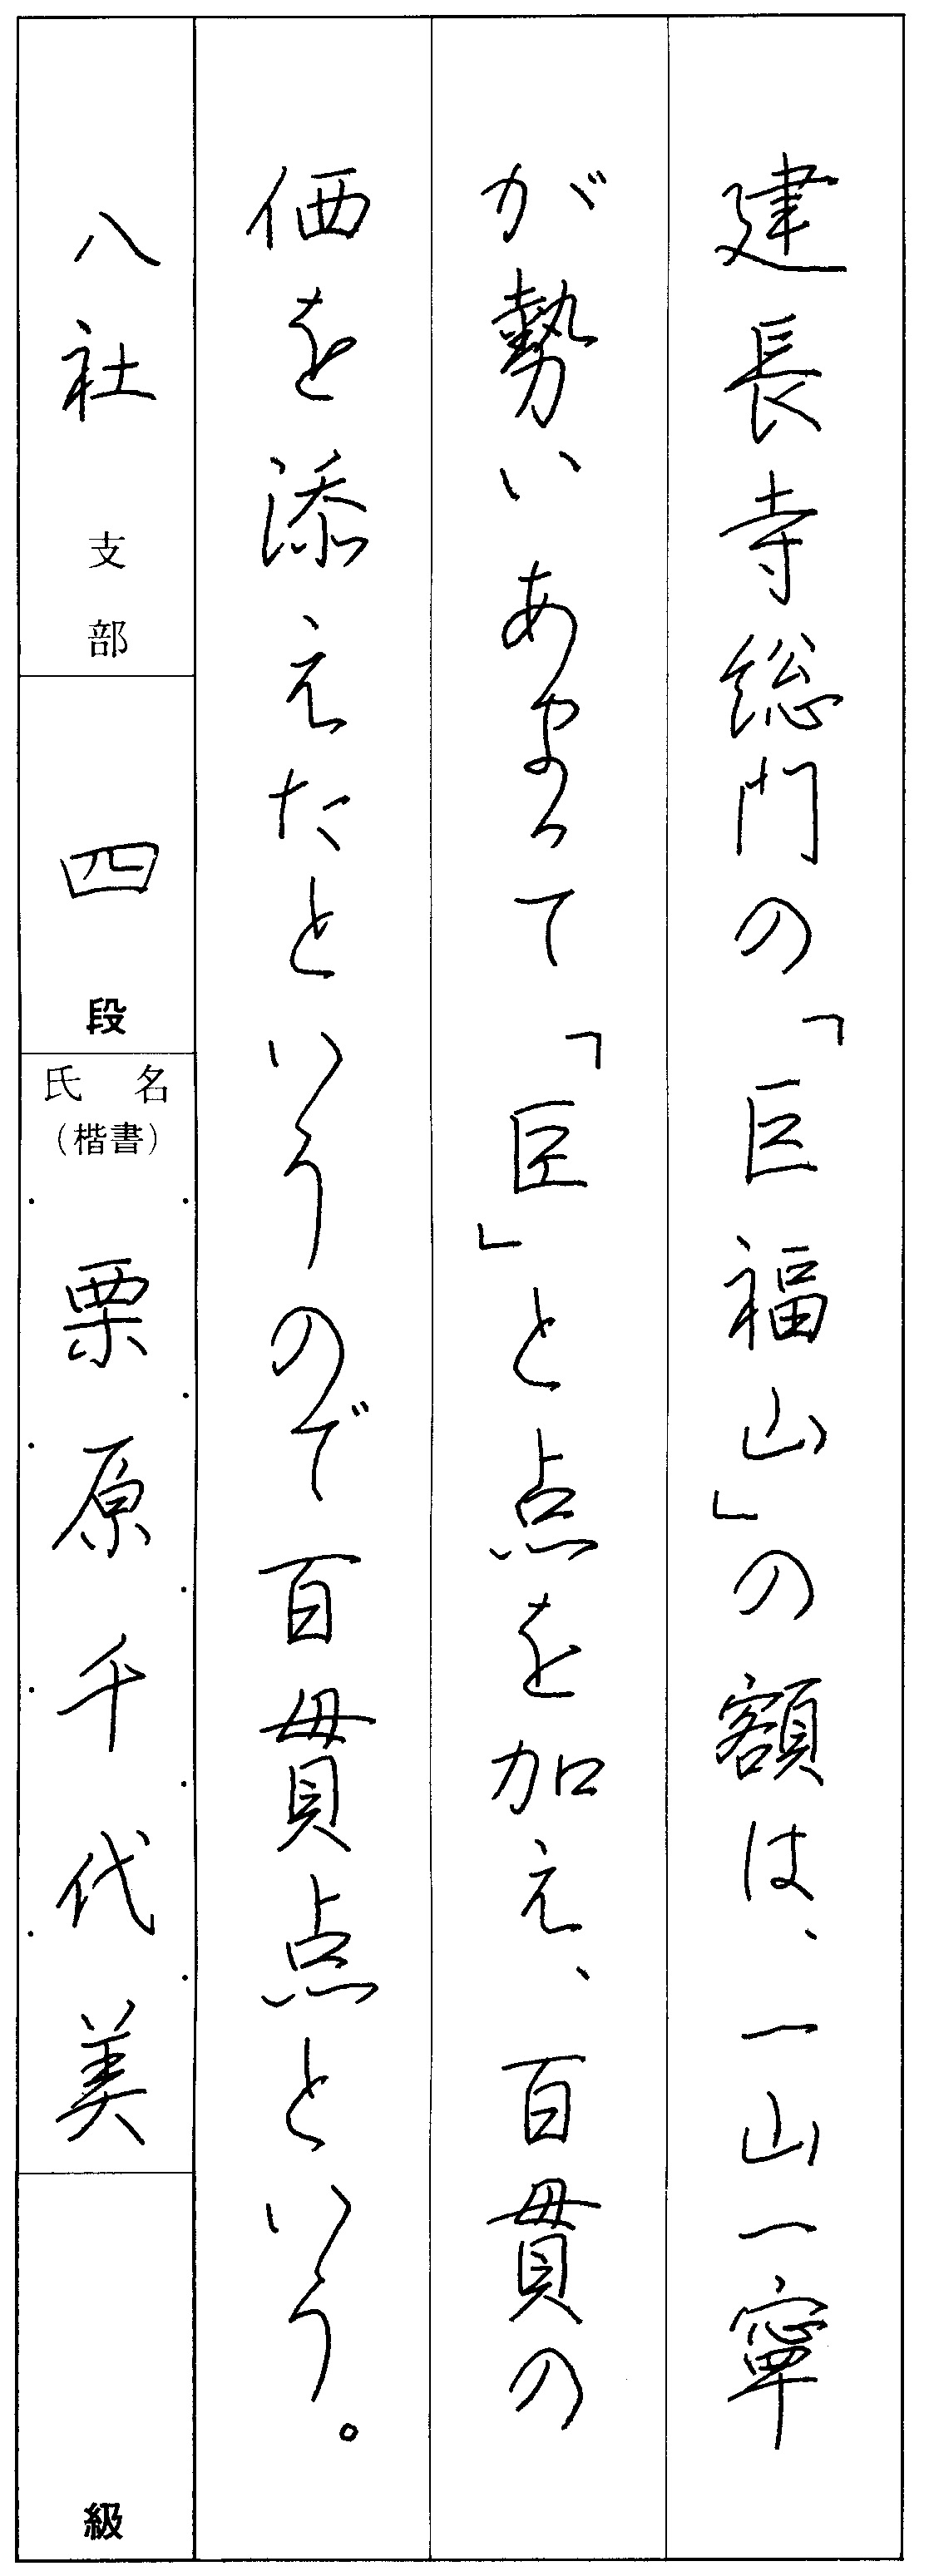 建長寺総門の「巨福山」の額は、一山一寧
が勢いあまって「臣」と点を加え、百貫の
価を添えたというので百貫点という。
八社 支部
四 段
氏名
(楷書)
栗原千代美
級